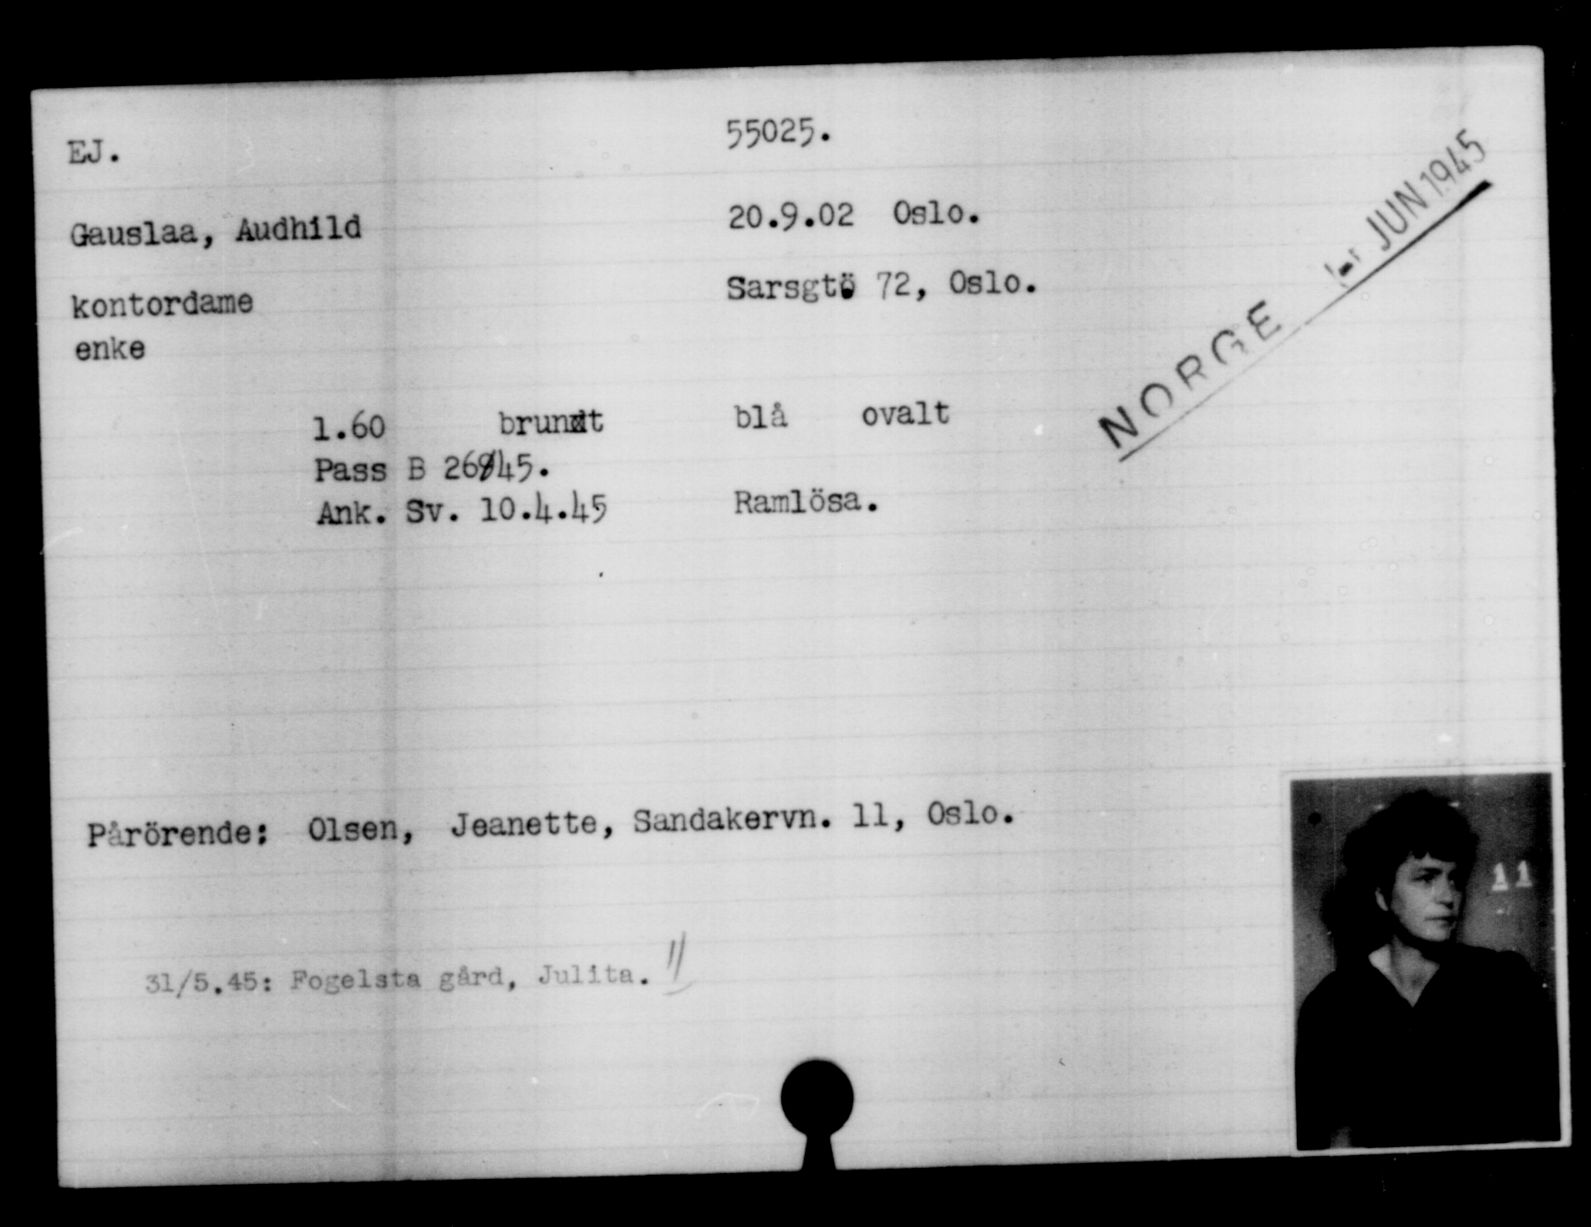 EJ.
55025.
Gauslaa, Audhild
20.9.02 Oslo.
kontordame
Sarsgt. 72, Oslo.
enke
1.60 brunt blå ovalt
Pass B
Ank. Sv. 10.4.45 Ramlösa.
NORGE JUN 1945
Pårörende: Olsen, Jeanette, Sandakervn. 11, Oslo.
11
31/5.45: Fogelsta gård, Julita.